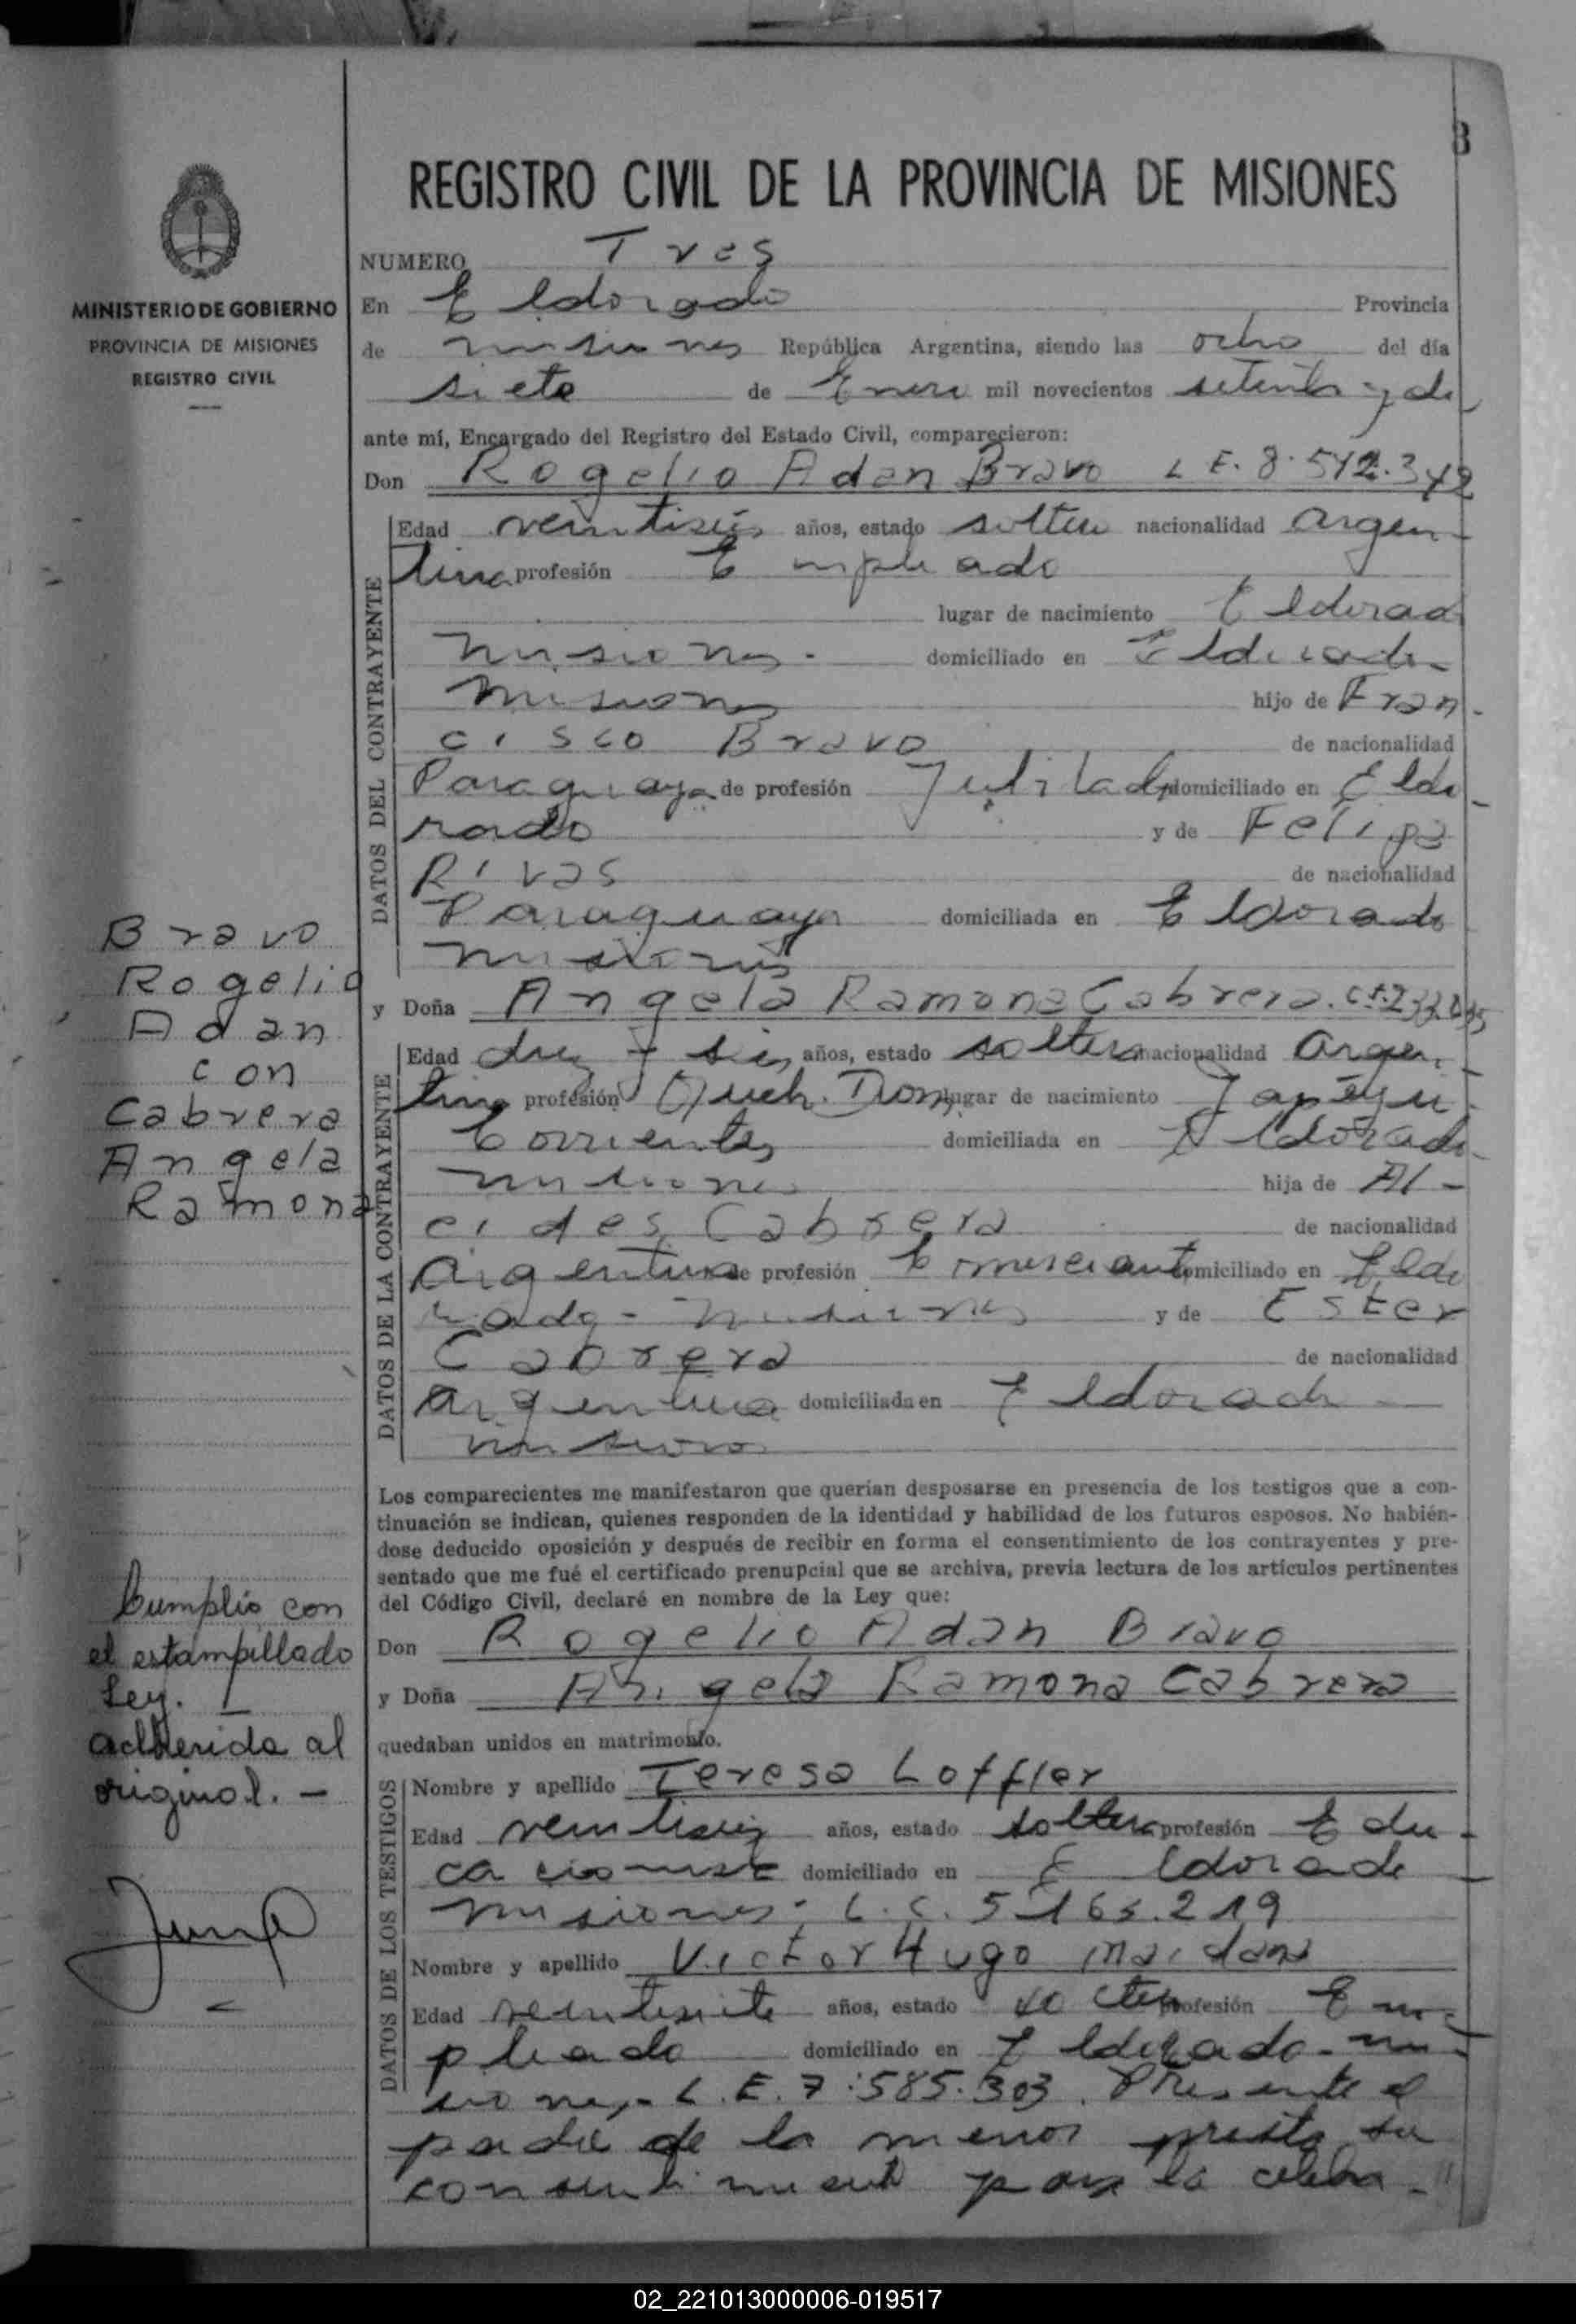 3
REGISTRO CIVIL DE LA PROVINCIA DE MISIONES
MINISTERIO DE GOBIERNO
PROVINCIA DE MISIONES
REGISTRO CIVIL
NUMERO Tres
En Eldorado Provincia
de misiones República Argentina, siendo las ocho del día
siete de Enero mil novecientos setenta y do
ante mí, Encargado del Registro del Estado Civil, comparecieron:
Don Rogelio Adan Bravo L E. 8.542.342
DATOS DEL CONTRAYENTE
Edad veintiseis años, estado soltero nacionalidad argen-
tina profesión Empleado
lugar de nacimiento Eldorad
misiones- domiciliado en Eldorado-
misiones hijo de Fran-
cisco Bravo de nacionalidad
Paraguaya de profesión Jubilado domiciliado en Eldo-
rado y de Felipa
Rivas de nacionalidad
Paraguaya domiciliada en Eldorado
misiones
y Doña Angela Ramona Cabrera.
DATOS DE LA CONTRAYENTE
Edad diez y seis años, estado soltera nacionalidad argen-
tina profesión Queh. Dom. lugar de nacimiento Yapeyu-
Corrientes domiciliada en Eldorado-
misiones hija de Al-
cides Cabrera de nacionalidad
argentina de profesión Comerciante domiciliado en Eldo
rado- misiones y de Ester
Cabrera de nacionalidad
argentina domiciliada en Eldorado-
misiones
Bravo
Rogelio
Adan
con
Cabrera
Angela
Ramona
Los comparecientes me manifestaron que querían desposarse en presencia de los testigos que a con-
tinuación se indican, quienes responden de la identidad y habilidad de los futuros esposos. No habién-
dose deducido oposición y después de recibir en forma el consentimiento de los contrayentes y pre-
sentado que me fué el certificado prenupcial que se archiva, previa lectura de los artículos pertinentes
del Código Civil, declaré en nombre de la Ley que:
Don Rogelio Adan Bravo
y Doña Angela Ramona Cabrera
quedaban unidos en matrimonio.
Cumplió con
el estampillado
Ley. I
adherida al
original.-
DATOS DE LOS TESTIGOS
Nombre y apellido Teresa Loffler
Edad veintiseis años, estado soltera profesión Edu-
cacionista domiciliado en Eldorado
misiones- L.C. 5.163.219
Nombre y apellido Victor Hugo Maidana
Edad veintisiete años, estado soltero profesión Em-
pleado domiciliado en Eldorado-mi-
siones- L.E. 7.585.303. Presente el
padre de la menor presta su
consentimiento para la celebra-
02_221013000006-019517